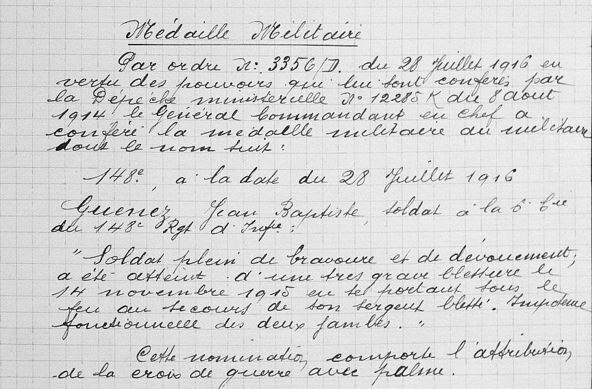 Médaille Militaire
Par ordre N° 3356/D. du 28 Juillet 1916 en
vertu des pouvoirs qui lui sont conférés par
la Dépêche ministerielle N° 12285 K du 8 aout
1914 le Général Commandant en chef a
conféré la médaille militaire au militaire
dont le nom suit:
148e, a la date du 28 Juillet 1916
Guenez Jean Baptiste, soldat à la 6e Cie
du 148e Rgt d'Infie:
"Soldat plein de bravoure et de dévouement;
a été atteint d'une tres grave blessure le
14 novembre 1915 en se portant sous le
feu au secours de son sergent blessé. Impotence
fonctionnelle des deux jambes."
Cette nomination, comporte l'attribution
de la croix de guerre avec palme.